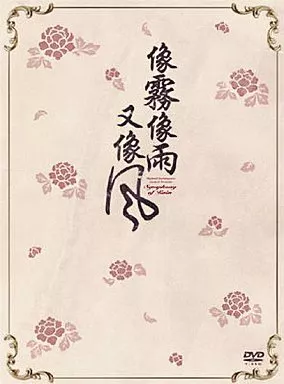 像霧像雨
又像風
Symphony
of Rain
DVD